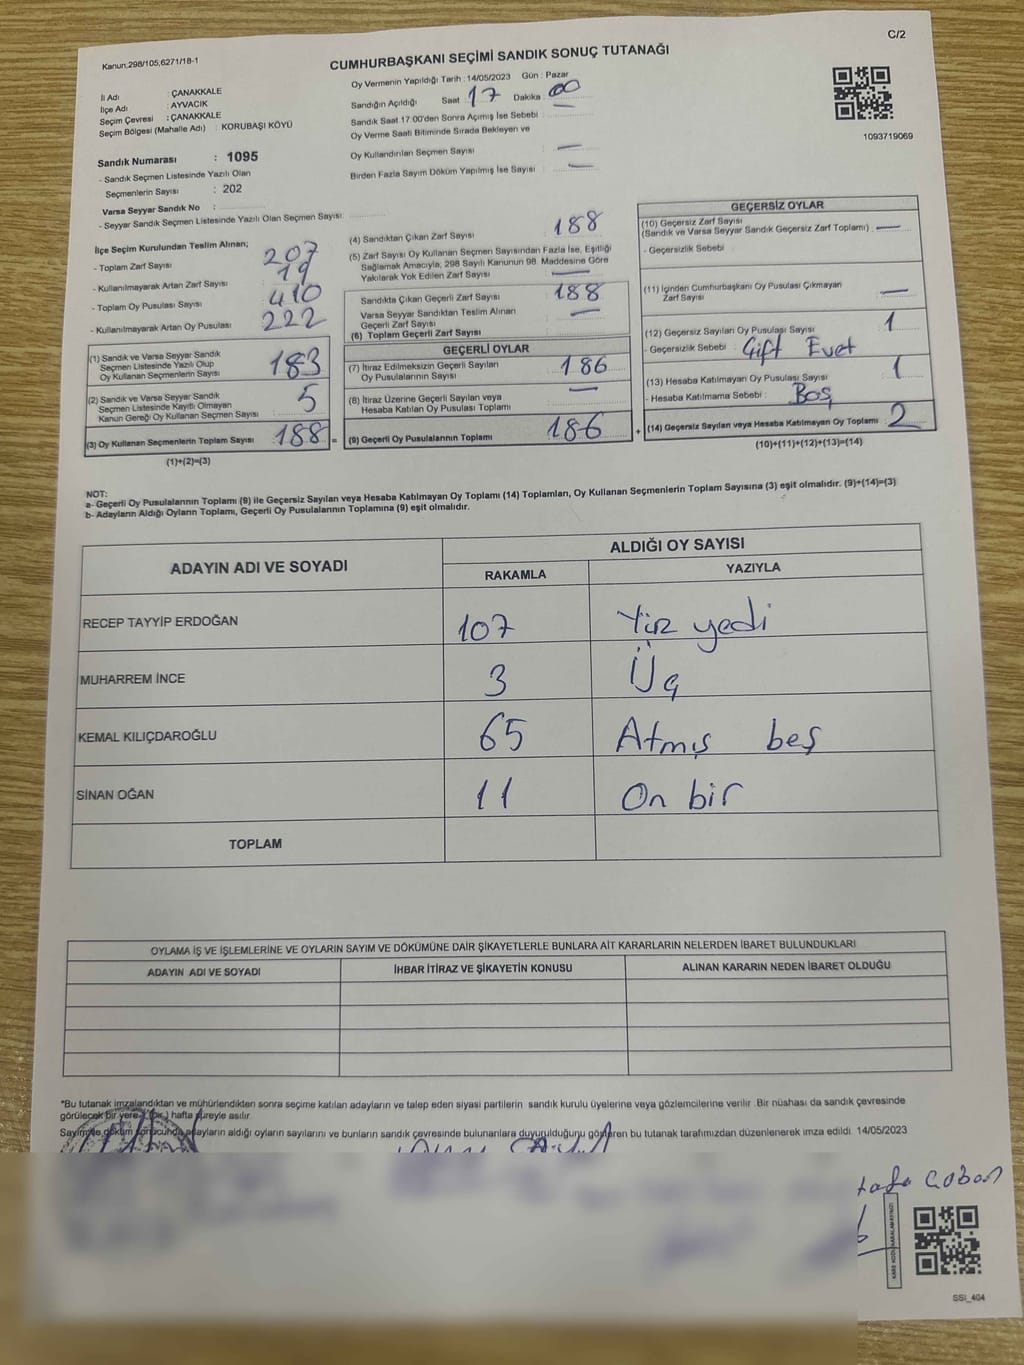 C/2
Kanun,298/105,6271/18-1
CUMHURBAŞKANI SEÇİMİ SANDIK SONUÇ TUTANAĞI
İl Adı : ÇANAKKALE
İlçe Adı : AYVACIK
Seçim Çevresi : ÇANAKKALE
Seçim Bölgesi (Mahalle Adı) : KORUBAŞI KÖYÜ
Sandık Numarası : 1095
- Sandık Seçmen Listesinde Yazılı Olan
Seçmenlerin Sayısı : 202
Varsa Seyyar Sandık No :
- Seyyar Sandık Seçmen Listesinde Yazılı Olan Seçmen Sayısı
Oy Vermenin Yapıldığı Tarih : 14/05/2023 Gün : Pazar
Sandığın Açıldığı Saat : 17 Dakika : 00
Sandık Saat 17:00'den Sonra Açımış İse Sebebi :
Oy Verme Saati Bitiminde Sırada Bekleyen ve
Oy Kullandırılan Seçmen Sayısı : —
Birden Fazla Sayım Döküm Yapılmış İse Sayısı : —
1093719069
İlçe Seçim Kurulundan Teslim Alınan;
- Toplam Zarf Sayısı : 207
- Kullanılmayarak Artan Zarf Sayısı : 19
- Toplam Oy Pusulası Sayısı : 410
- Kullanılmayarak Artan Oy Pusulası : 222
(1) Sandık ve Varsa Seyyar Sandık
Seçmen Listesinde Yazılı Olup
Oy Kullanan Seçmenlerin Sayısı : 183
(2) Sandık ve Varsa Seyyar Sandık
Seçmen Listesinde Kayıtlı Olmayan
Kanun Gereği Oy Kullanan Seçmen Sayısı : 5
(3) Oy Kullanan Seçmenlerin Toplam Sayısı : 188 =
(1)+(2)=(3)
(4) Sandıktan Çıkan Zarf Sayısı : 188
(5) Zarf Sayısı Oy Kullanan Seçmen Sayısından Fazla İse, Eşitliği
Sağlamak Amacıyla, 298 Sayılı Kanunun 98. Maddesine Göre
Yakılarak Yok Edilen Zarf Sayısı : —
Sandıkta Çıkan Geçerli Zarf Sayısı : 188
Varsa Seyyar Sandıktan Teslim Alınan
Geçerli Zarf Sayısı : —
(6) Toplam Geçerli Zarf Sayısı
GEÇERLİ OYLAR
(7) İtiraz Edilmeksizin Geçerli Sayılan
Oy Pusulalarının Sayısı : 186
(8) İtiraz Üzerine Geçerli Sayılan veya
Hesaba Katılan Oy Pusulası Toplamı : —
(9) Geçerli Oy Pusulalarının Toplamı : 186 +
GEÇERSİZ OYLAR
(10) Geçersiz Zarf Sayısı
(Sandık ve Varsa Seyyar Sandık Geçersiz Zarf Toplamı) : —
- Geçersizlik Sebebi :
(11) İçinden Cumhurbaşkanı Oy Pusulası Çıkmayan
Zarf Sayısı : —
(12) Geçersiz Sayılan Oy Pusulası Sayısı : 1
- Geçersizlik Sebebi : Çift Evet
(13) Hesaba Katılmayan Oy Pusulası Sayısı : 1
- Hesaba Katılmama Sebebi : Boş
(14) Geçersiz Sayılan veya Hesaba Katılmayan Oy Toplamı : 2
(10)+(11)+(12)+(13)=(14)
NOT:
a- Geçerli Oy Pusulalarının Toplamı (9) ile Geçersiz Sayılan veya Hesaba Katılmayan Oy Toplamı (14) Toplamları, Oy Kullanan Seçmenlerin Toplam Sayısına (3) eşit olmalıdır. (9)+(14)=(3)
b- Adayların Aldığı Oyların Toplamı, Geçerli Oy Pusulalarının Toplamına (9) eşit olmalıdır.
ADAYIN ADI VE SOYADI ALDIĞI OY SAYISI
RAKAMLA YAZIYLA
RECEP TAYYİP ERDOĞAN 107 Yüz yedi
MUHARREM İNCE 3 Üç
KEMAL KILIÇDAROĞLU 65 Atmış beş
SİNAN OĞAN 11 On bir
TOPLAM
OYLAMA İŞ VE İŞLEMLERİNE VE OYLARIN SAYIM VE DÖKÜMÜNE DAİR ŞİKAYETLERLE BUNLARA AİT KARARLARIN NELERDEN İBARET BULUNDUKLARI
ADAYIN ADI VE SOYADI İHBAR İTİRAZ VE ŞİKAYETİN KONUSU ALINAN KARARIN NEDEN İBARET OLDUĞU
*Bu tutanak imzalandıktan ve mühürlendikten sonra seçime katılan adayların ve talep eden siyasi partilerin sandık kurulu üyelerine veya gözlemcilerine verilir. Bir nüshası da sandık çevresinde
görülecek bir yere 1 (bir) hafta süreyle asılır.
Sayım ve döküm sonucunda adayların aldığı oyların sayılarını ve bunların sandık çevresinde bulunanlara duyurulduğunu gösteren bu tutanak tarafımızdan düzenlenerek imza edildi. 14/05/2023
Çoban
KARE KODU KARALAMAYINIZ!
SSI_404